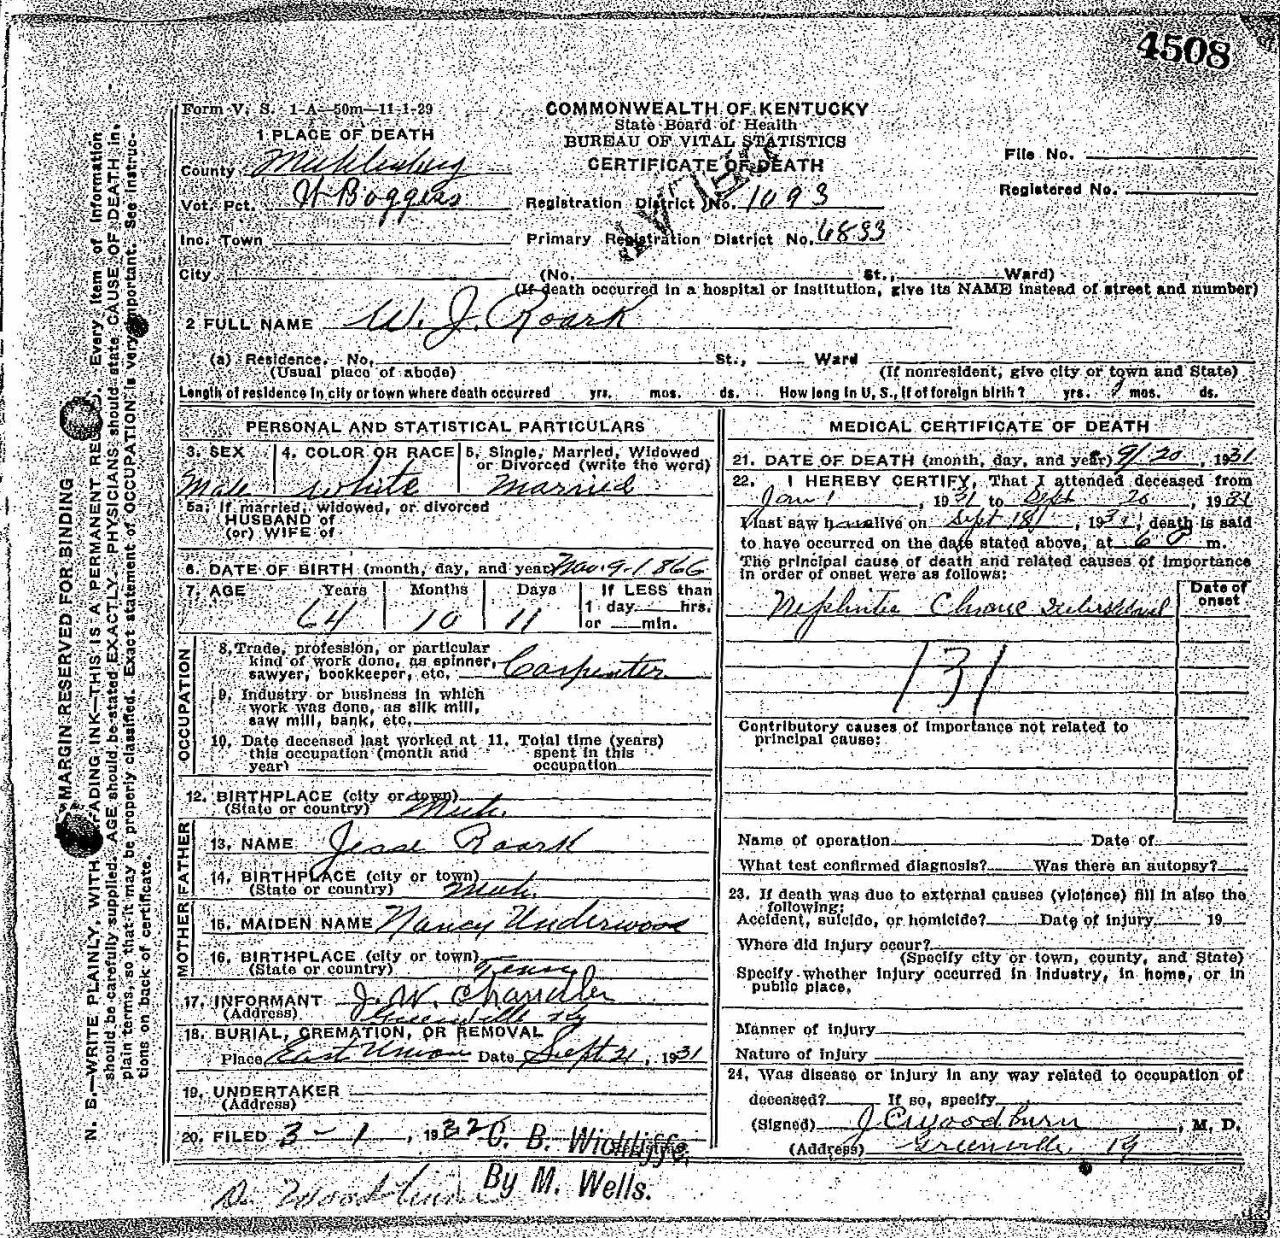 4508
Form V. S. 1-A-50m-11-1-29
COMMONWEALTH OF KENTUCKY
State Board of Health
BUREAU OF VITAL STATISTICS
CERTIFICATE OF DEATH
File No.
Registered No.
1 PLACE OF DEATH
County Muhlenburg
Vot. Pct. H Boggess
Registration District No. 1093
Inc. Town
Primary Registration District No. 6833
City
(No. St., Ward)
(If death occurred in a hospital or institution, give its NAME instead of street and number)
2 FULL NAME W. J. Roark
(a) Residence. No. St., Ward
(Usual place of abode) (If nonresident, give city or town and State)
Length of residence in city or town where death occurred yrs. mos. ds. How long in U. S., if of foreign birth? yrs. mos. ds.
PERSONAL AND STATISTICAL PARTICULARS
3. SEX 4. COLOR OR RACE 5. Single, Married, Widowed
or Divorced (write the word)
Male White Married
5a. If married, widowed, or divorced
HUSBAND of
(or) WIFE of
6. DATE OF BIRTH (month, day, and year) Nov. 9-1866
7. AGE Years Months Days If LESS than
1 day hrs.
or min.
64 10 11
OCCUPATION
8. Trade, profession, or particular
kind of work done, as spinner,
sawyer, bookkeeper, etc. Carpenter
9. Industry or business in which
work was done, as silk mill,
saw mill, bank, etc.
10. Date deceased last worked at
this occupation (month and
year)
11. Total time (years)
spent in this
occupation
12. BIRTHPLACE (city or town)
(State or country) Muh.
FATHER
13. NAME Jesse Roark
14. BIRTHPLACE (city or town)
(State or country) Muh.
MOTHER
15. MAIDEN NAME Nancy Underwood
16. BIRTHPLACE (city or town)
(State or country) Tenn
17. INFORMANT J. W. Chandler
(Address) Greenville Ky
18. BURIAL, CREMATION, OR REMOVAL
Place East Union Date Sept 21, 1931
19. UNDERTAKER
(Address)
20. FILED 3-1, 1932 C. B. Wickliffe,
By M. Wells.
Dr. Woodburn
MEDICAL CERTIFICATE OF DEATH
21. DATE OF DEATH (month, day, and year) 9/20, 1931
22. I HEREBY CERTIFY, That I attended deceased from
Jan 1, 1931 to Sept 20, 1931
I last saw h alive on Sept 18, 193, death is said
to have occurred on the date stated above, at 6 m.
The principal cause of death and related causes of importance
in order of onset were as follows:
Date of
onset
Nephritis Chronic
131
Contributory causes of importance not related to
principal cause:
Name of operation Date of
What test confirmed diagnosis? Was there an autopsy?
23. If death was due to external causes (violence) fill in also the
following:
Accident, suicide, or homicide? Date of injury 19
Where did injury occur?
(Specify city or town, county, and State)
Specify whether injury occurred in industry, in home, or in
public place.
Manner of injury
Nature of injury
24. Was disease or injury in any way related to occupation of
deceased? If so, specify
(Signed) J C Woodburn, M. D.
(Address) Greenville, Ky
MARGIN RESERVED FOR BINDING
N. B.—WRITE PLAINLY, WITH FADING INK—THIS IS A PERMANENT Every item of information
should be carefully supplied. AGE should be stated EXACTLY. PHYSICIANS should state CAUSE OF DEATH in
plain terms, so that it may be properly classified. Exact statement of OCCUPATION is very important. See instruc-
tions on back of certificate.